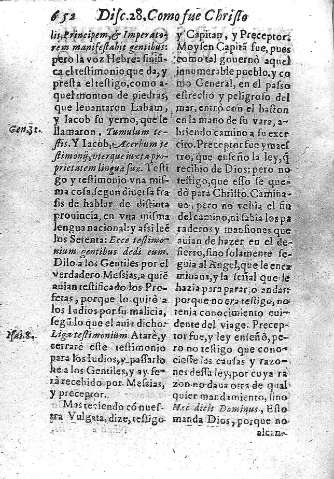 652 Disc. 28. Como fue Christo
lis, Principem, & Imperato
rem manifestabis gentibus:
pero la voz Hebrea
el testimonio que da, y
presta el testigo, como a
quel monton de piedras,
que leuantaron Labam,
y Jacob su yerno, que le
llamaron, Tumulum te-
Gen. 31.
stis. Y Iacob, Aceruum te
stimonij, vterque iuxta pro-
prietatem linguæ suæ. Testi
go y testimonio vna mis
ma cosa, segun diuersa fra
sis de hablar de distinta
prouincia, en vna misma
lengua nacional: y assi leé
los Setenta: Ecce testimo-
nium gentibus dedi eum.
Diólo a los Gentiles por el
verdadero Messias, a quien
auian testificado los Pro-
fetas, porque lo quitó a
los Iudios por su malicia,
segū lo que el auia dicho:
Isai. 8.
Liga testimonium Ataré, y
cerraré este testimonio
para los Iudios, y passarlo
he a los Gentiles, y ay se-
rá recebido por Messias,
y preceptor.
Mas teniēdo cō nues-
tra Vulgata, dize, testigo
y Capitan, y Preceptor.
Moysen Capitā fue, pues
como tal gouernó aquel
innumerable pueblo, y co
mo General, en el passo
estrecho y peligro del
mar, entrò con el baston
en la mano de su vara, a-
briendo camino a su exer
cito. Preceptor fue y maes
tro, que enseñó la ley, q̄
recibio de Dios; pero no
testigo, que esso se que-
dó para Christo. Camina-
uan, pero no vehia el fin
del camino, ni sabia los pa
raderos y mansiones que
auian de hazer en el de-
sierto, sino solamente se-
guia al Angel, que le enca
minaua, y la señal que le
hazia para parar, o andar:
porque no era testigo, no
tenia conocimiento eui-
dente del viage. Precep-
tor fue, y ley enseñó, pe-
ro no testigo que cono-
ciesse las causas y razo-
nes dessa ley, por cuya ra
zon no daua otra de qual
quier mandamiento, sino
Hæc dicit Dominus, Esto
manda Dios, porque no
alcan-